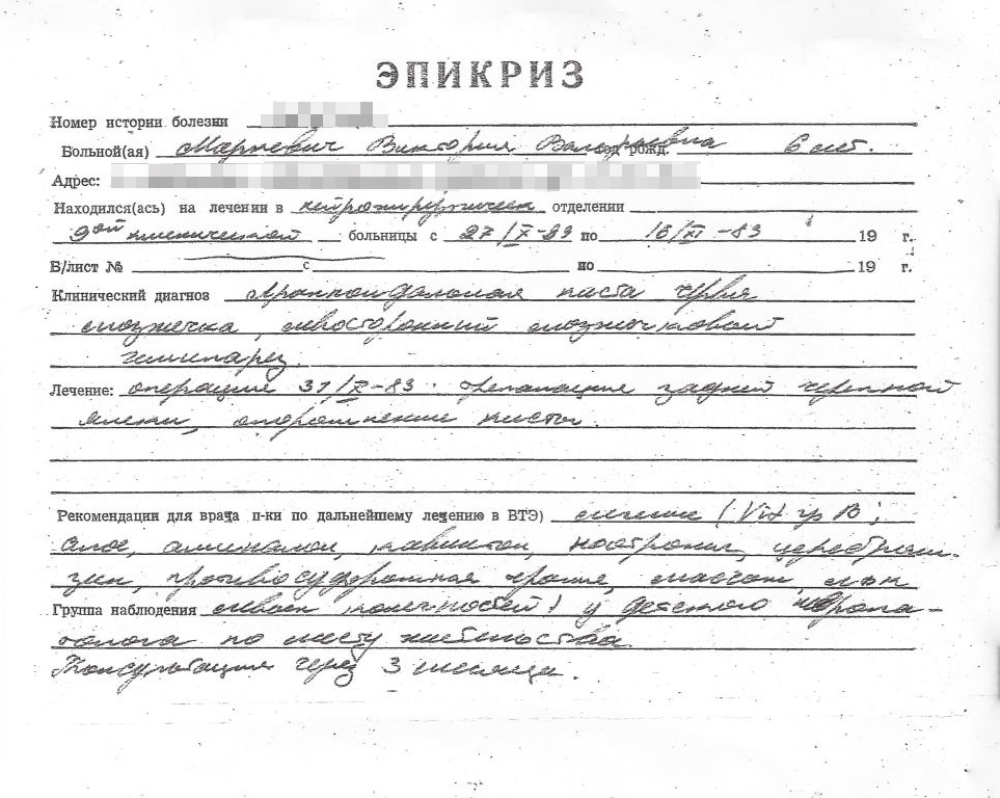 ЭПИКРИЗ
Номер истории болезни
Больной(ая) Виктория год рожд. 6 лет.
Адрес:
Находился(ась) на лечении в нейрохирургическ отделении
9ой клинической больницы с 27/X-83 по 16/XI-83 19 г.
Б/лист № с по 19 г.
Клинический диагноз Арахноидальная киста червя
мозжечка, левосторонний мозжечковый
гемипарез.
Лечение: операция 31/X-83. трепанация задней черепной
ямки, опорожнение кисты.
Рекомендации для врача п-ки по дальнейшему лечению в ВТЭ) лечение (Vit гр В;
алоэ, аминалон, кавинтон, ноотропил, церебролизин,
противосудорожная массаж
Группа наблюдения конечностей) у детского невропа-
толога по месту жительства.
Консультация через 3 месяца.